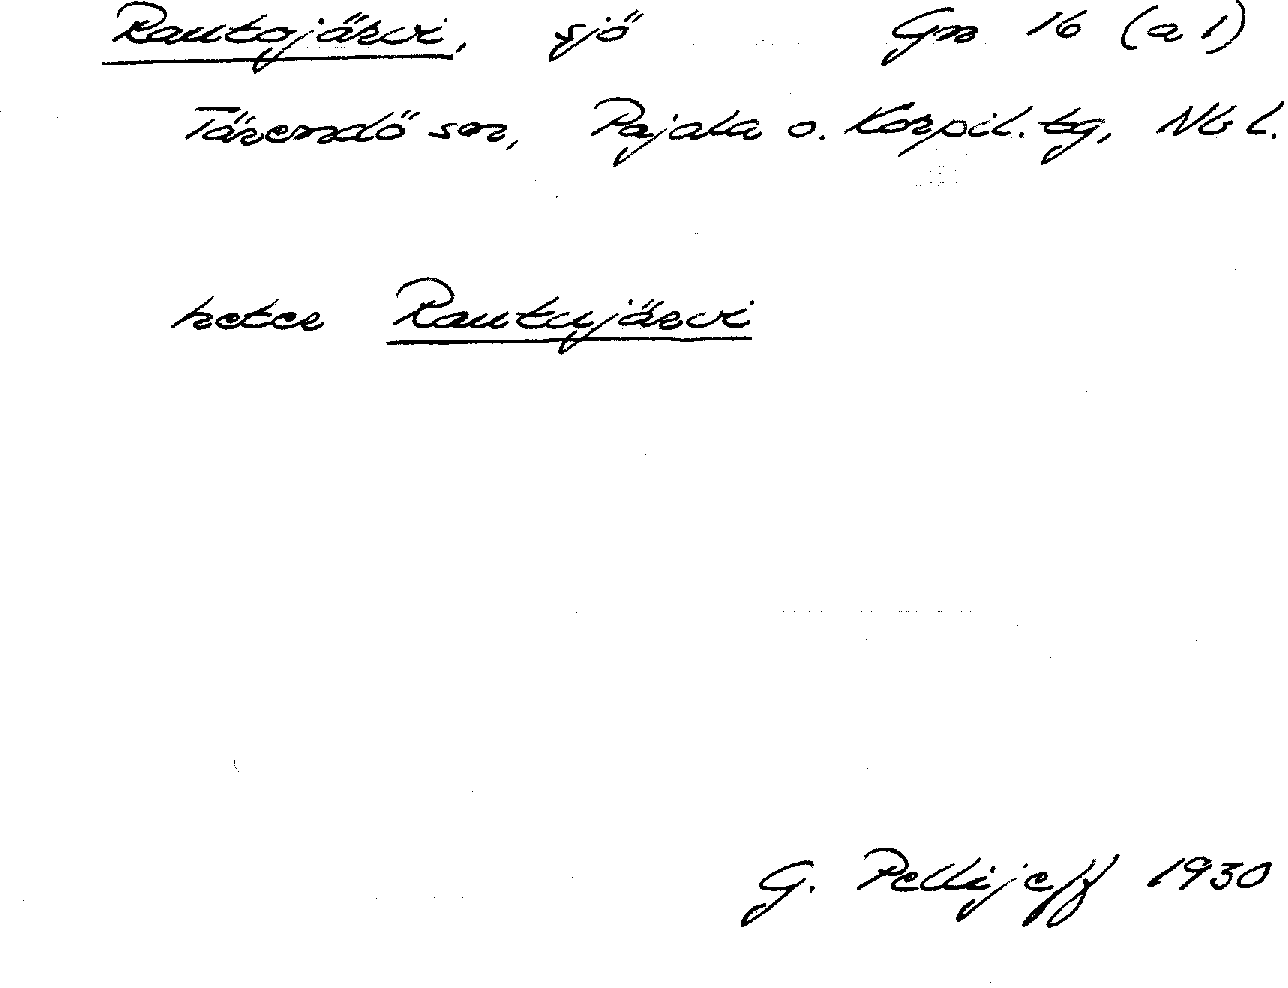 Rautojärvi, sjö Gn 16 (a 1)
Tärendö sn, Pajala o. Korpil. tg, Nb l.
heter Rautujärvi
G. Pellijeff 1930